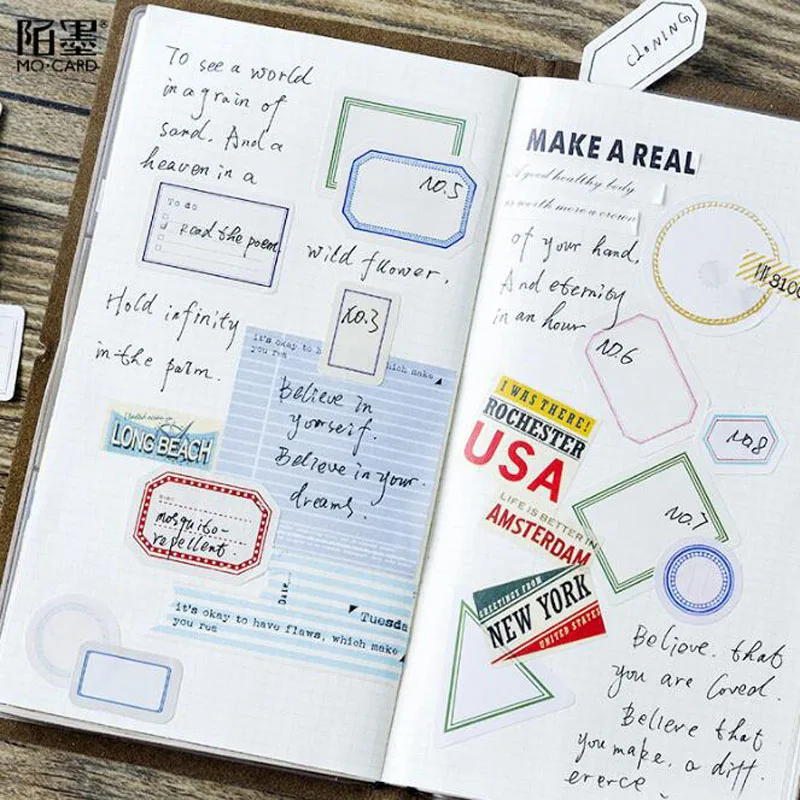 陌墨®
MO·CARD
CLONING
To see a world
in a grain of
sand. And a
heaven in a
NO.5
To do
Read the poem.
wild flower.
Hold infinity
in the parm.
NO.3
it's okay to h
which make
you rea
Believe in
yourself.
Believe in your
dreams.
LONG BEACH
mosquito-
repellent.
Date
Tuesda
it's okay to have flaws, which make
you rea
MAKE A REAL
A good healthy body
is worth more a crown
of your hand,
And eternity
in an hour
NO.6
I WAS THERE!
ROCHESTER
USA
NO.8
LIFE IS BETTER IN
AMSTERDAM
NO.7
GREETINGS FROM
NEW YORK
UNITED STATES
Believe. that
you are loved.
Believe that
you make, a diff
ererce.